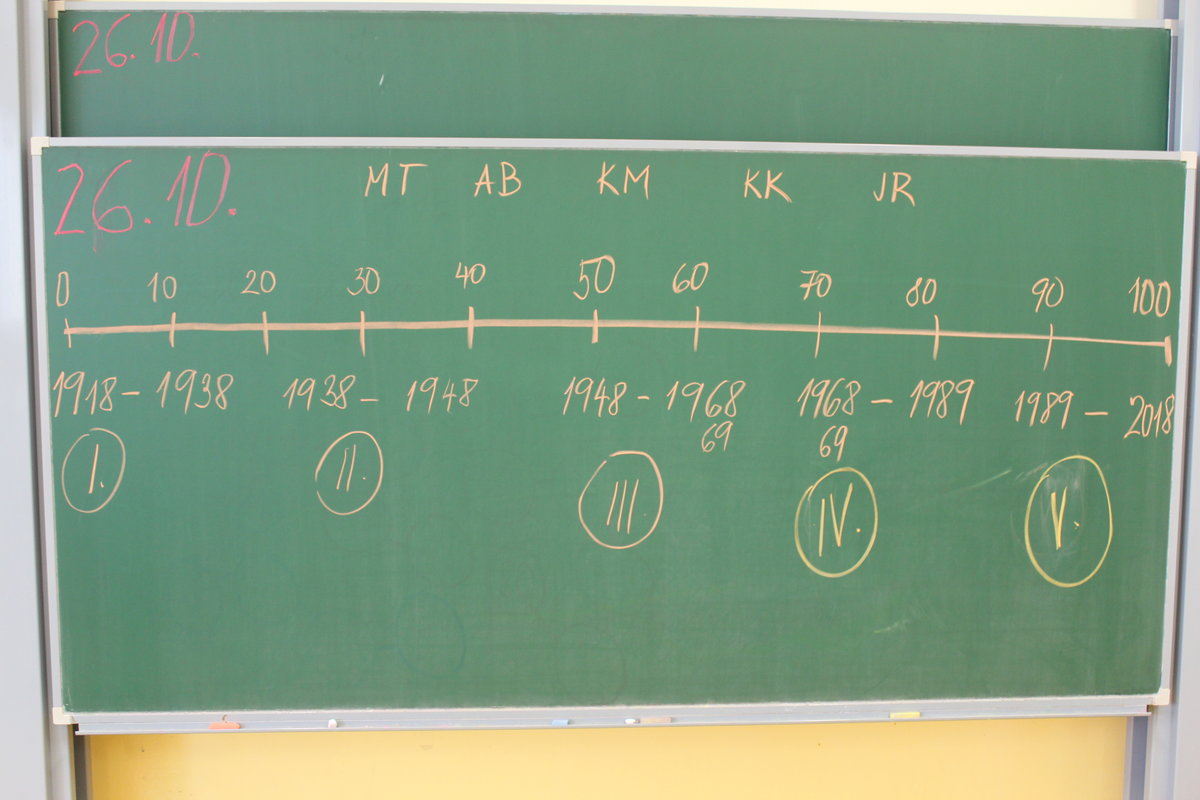 26.10.
26.10.
MT AB KM KK JR
0 10 20 30 40 50 60 70 80 90 100
1918 - 1938 1938 - 1948 1948 - 1968 1968 - 1989 1989 - 2018
69 69
I. II. III IV. V.